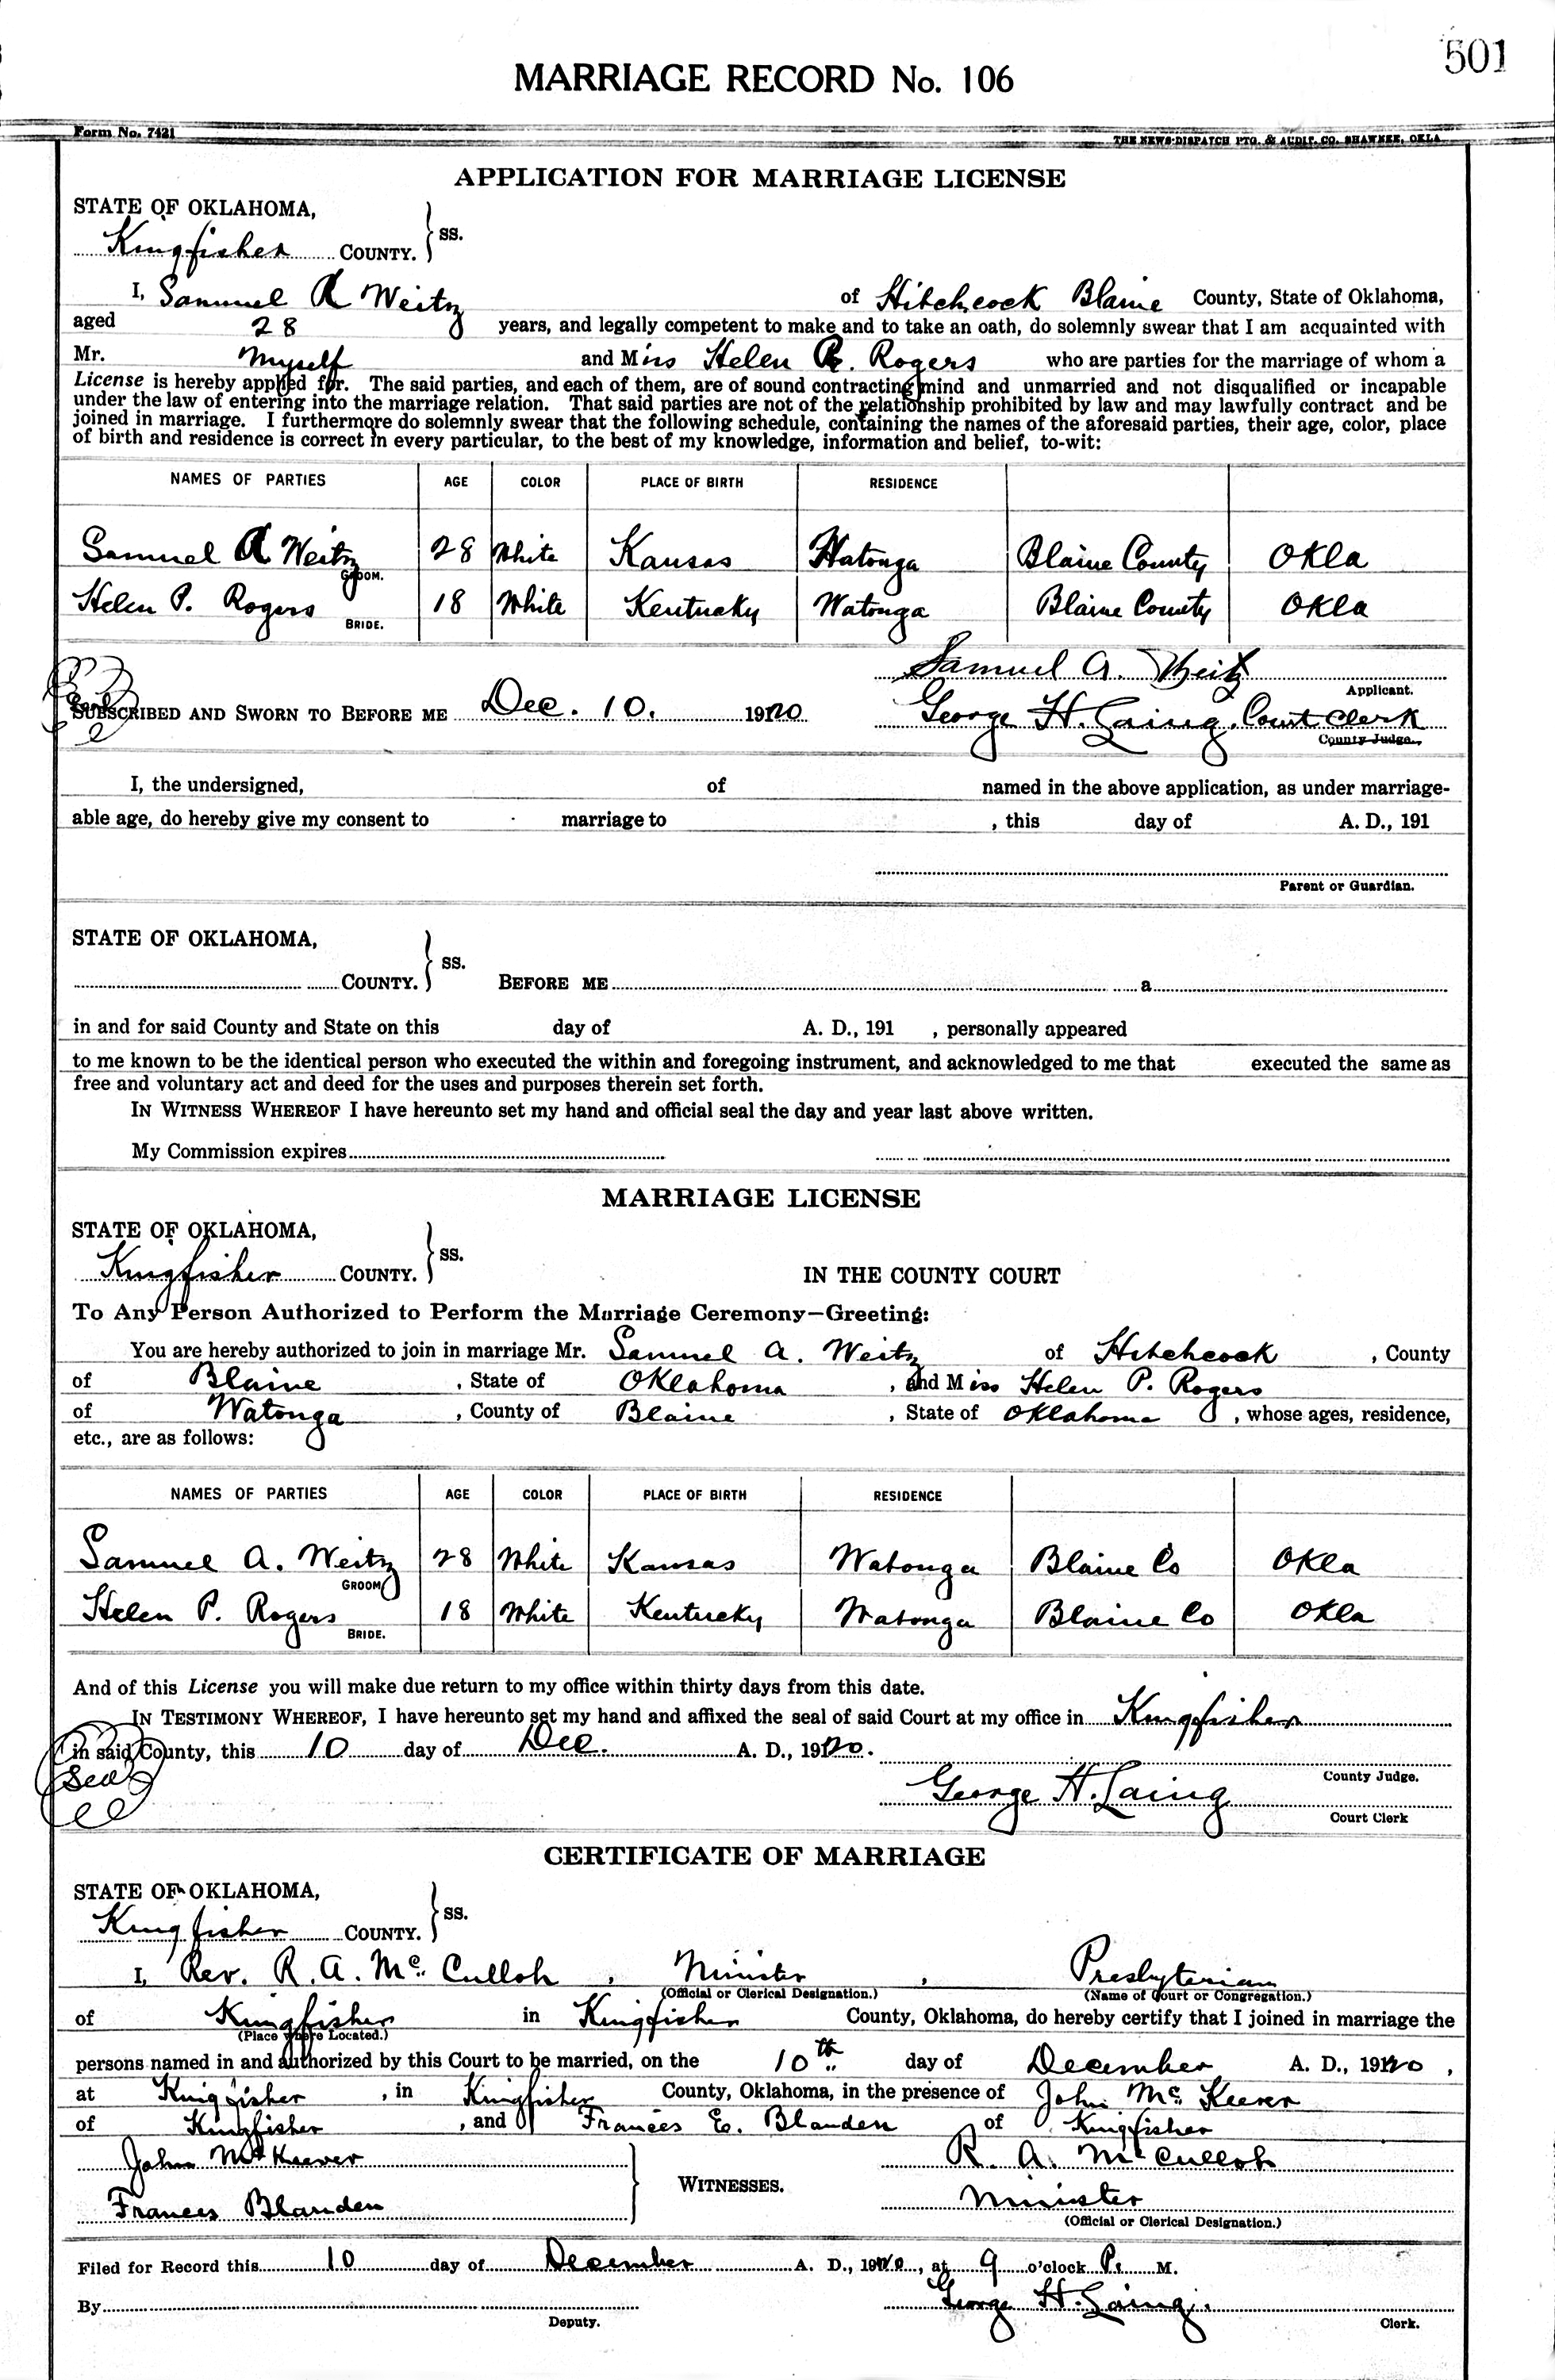 501
MARRIAGE RECORD No. 106
Form No. 7421
THE NEWS-DISPATCH PTG. & AUDIT. CO. SHAWNEE, OKLA.
APPLICATION FOR MARRIAGE LICENSE
STATE OF OKLAHOMA,
Kingfisher COUNTY. } SS.
I, Samuel A Weitz of Hitchcock Blaine County, State of Oklahoma,
aged 28 years, and legally competent to make and to take an oath, do solemnly swear that I am acquainted with
Mr. Myself and Miss Helen P. Rogers who are parties for the marriage of whom a
License is hereby applied for. The said parties, and each of them, are of sound contracting mind and unmarried and not disqualified or incapable
under the law of entering into the marriage relation. That said parties are not of the relationship prohibited by law and may lawfully contract and be
joined in marriage. I furthermore do solemnly swear that the following schedule, containing the names of the aforesaid parties, their age, color, place
of birth and residence is correct in every particular, to the best of my knowledge, information and belief, to-wit:
NAMES OF PARTIES AGE COLOR PLACE OF BIRTH RESIDENCE
Samuel A Weitz 28 White Kansas Watonga Blaine County Okla
GROOM.
Helen P. Rogers 18 White Kentucky Watonga Blaine County Okla
BRIDE.
Samuel A. Weitz
Applicant.
Seal
SUBSCRIBED AND SWORN TO BEFORE ME Dec. 10. 1920 George H. Laing, Court Clerk
County Judge.
I, the undersigned, of named in the above application, as under marriage-
able age, do hereby give my consent to marriage to , this day of A. D., 191
Parent or Guardian.
STATE OF OKLAHOMA,
COUNTY. } SS. BEFORE ME a
in and for said County and State on this day of A. D., 191 , personally appeared
to me known to be the identical person who executed the within and foregoing instrument, and acknowledged to me that executed the same as
free and voluntary act and deed for the uses and purposes therein set forth.
IN WITNESS WHEREOF I have hereunto set my hand and official seal the day and year last above written.
My Commission expires
MARRIAGE LICENSE
STATE OF OKLAHOMA,
Kingfisher COUNTY. } SS. IN THE COUNTY COURT
To Any Person Authorized to Perform the Marriage Ceremony—Greeting:
You are hereby authorized to join in marriage Mr. Samuel A. Weitz of Hitchcock , County
of Blaine , State of Oklahoma , and Miss Helen P. Rogers
of Watonga , County of Blaine , State of Oklahoma , whose ages, residence,
etc., are as follows:
NAMES OF PARTIES AGE COLOR PLACE OF BIRTH RESIDENCE
Samuel A. Weitz 28 White Kansas Watonga Blaine Co Okla
GROOM
Helen P. Rogers 18 White Kentucky Watonga Blaine Co Okla
BRIDE.
And of this License you will make due return to my office within thirty days from this date.
IN TESTIMONY WHEREOF, I have hereunto set my hand and affixed the seal of said Court at my office in Kingfisher
in said County, this 10 day of Dec. A. D., 1920.
County Judge.
Seal
George H. Laing
Court Clerk
CERTIFICATE OF MARRIAGE
STATE OF OKLAHOMA,
Kingfisher COUNTY. } SS.
I, Rev. R. A. McCulloh , Minister , Presbyterian
(Official or Clerical Designation.) (Name of Court or Congregation.)
of Kingfisher in Kingfisher County, Oklahoma, do hereby certify that I joined in marriage the
(Place where Located.)
persons named in and authorized by this Court to be married, on the 10th day of December A. D., 1920 ,
at Kingfisher , in Kingfisher County, Oklahoma, in the presence of John McKeever
of Kingfisher , and Frances E. Blanden of Kingfisher
John McKeever R. A. McCulloh
WITNESSES.
Frances Blanden Minister
(Official or Clerical Designation.)
Filed for Record this 10 day of December A. D., 1920, at 9 o'clock P. M.
By George H. Laing.
Deputy. Clerk.